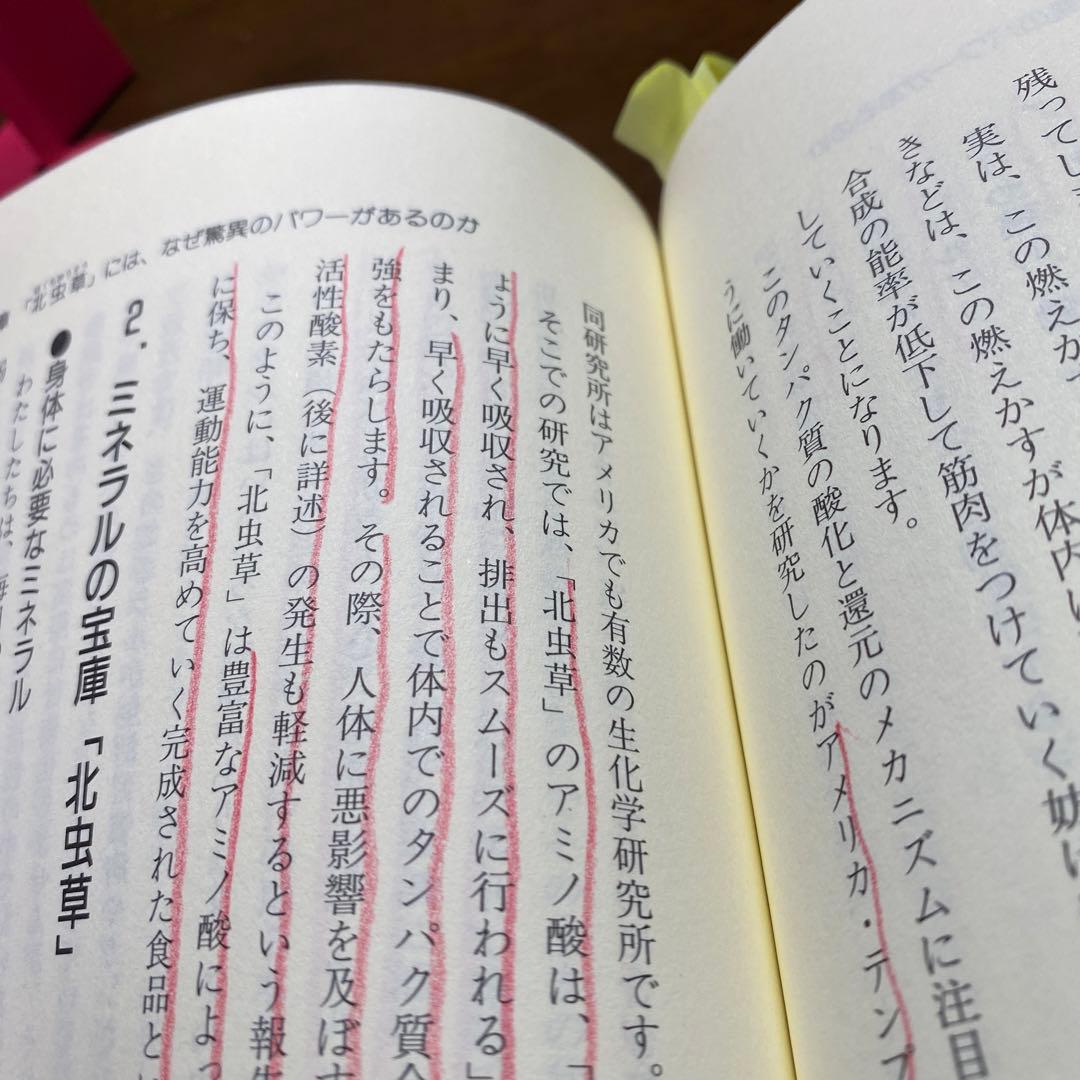 残ってしま
実は、この燃えかすが体内に
きなどは、この燃えかすが体内い
合成の能率が低下して筋肉をつけていく妨げ
していくことになります。
このタンパク質の酸化と還元のメカニズムに注目
うに働いていくかを研究したのがアメリカ・テンプ
同研究所はアメリカでも有数の生化学研究所です。
そこでの研究では、「北虫草」のアミノ酸は、「
ように早く吸収され、排出もスムーズに行われる」
まり、早く吸収されることで体内でのタンパク質合
強をもたらします。その際、人体に悪影響を及ぼす
活性酸素（後に詳述）の発生も軽減するという報告
このように、「北虫草」は豊富なアミノ酸によっ
に保ち、運動能力を高めていく完成された食品とい
2．ミネラルの宝庫「北虫草」
●身体に必要なミネラル
わたしたちは、毎日
「北虫草」には、なぜ驚異のパワーがあるのか